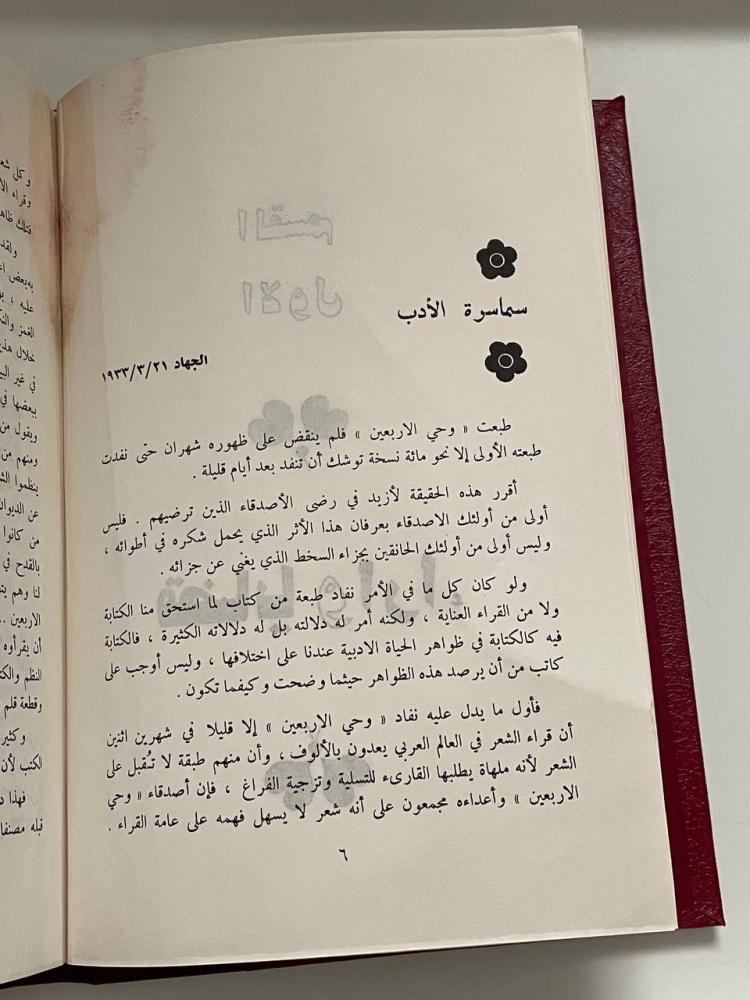 سماسرة الأدب
الجهاد ١٩٣٣/٣/٢١
طبعت « وحي الاربعين » فلم ينقض على ظهوره شهران حتى نفدت
طبعته الأولى إلا نحو مائة نسخة توشك أن تنفد بعد أيام قليلة .
أقرر هذه الحقيقة لأزيد في رضى الأصدقاء الذين ترضيهم . فليس
أولى من أولئك الاصدقاء بعرفان هذا الأثر الذي يحمل شكره في أطوائه ،
وليس أولى من أولئك الحانقين بجزاء السخط الذي يغني عن جزائه .
ولو كان كل ما في الأمر نفاد طبعة من كتاب لما استحق منا الكتابة
ولا من القراء العناية ، ولكنه أمر له دلالته بل له دلالاته الكثيرة ، فالكتابة
فيه كالكتابة في ظواهر الحياة الادبية عندنا على اختلافها ، وليس أوجب على
كاتب من أن يرصد هذه الظواهر حيثما وضحت وكيفما تكون .
فأول ما يدل عليه نفاد « وحي الاربعين » إلا قليلا في شهرين اثنين
أن قراء الشعر في العالم العربي يعدون بالألوف ، وأن منهم طبقة لا تُقبل على
الشعر لأنه ملهاة يطلبها القارىء للتسلية وتزجية الفراغ ، فإن أصدقاء « وحي
الاربعين » وأعداءه مجمعون على أنه شعر لا يسهل فهمه على عامة القراء .
٦
القسم
الاول
قضايا وآراء
وكل شعر
وقراء
ولقد
عليه ،
خلال هذ
في غير
بعضها في
ويقول من
ومنهم من
ينظموا
عن الديوان
من كانوا
بالقدح في
لنا وهم
الاربعين ..
أن يقرأوه
النظم
وقطعة قلم
وكثير
الكتب لأن
فهذا
قبله